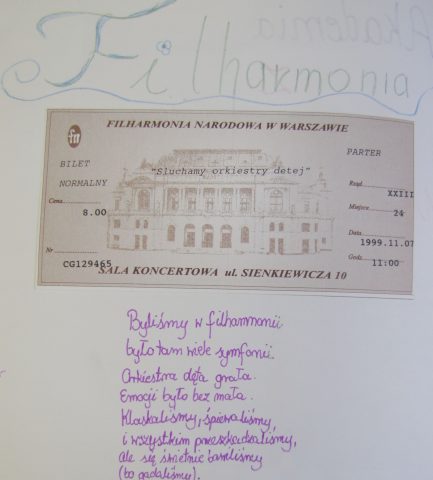 Filharmonia
FILHARMONIA NARODOWA W WARSZAWIE
fn
BILET
NORMALNY
PARTER
"Sluchamy orkiestry detej"
Rząd
XXIII
Cena
8.00
Miejsce
24
Data
1999.11.07
Nr
CG129465
Godz.
11:00
SALA KONCERTOWA ul. SIENKIEWICZA 10
Byliśmy w filharmonii
było tam wiele symfonii.
Orkiestra dęta grała.
Emocji było bez mała.
Klaskaliśmy, śpiewaliśmy,
i wszystkim przeszkadzaliśmy,
ale się świetnie bawiliśmy
(bo gadaliśmy).